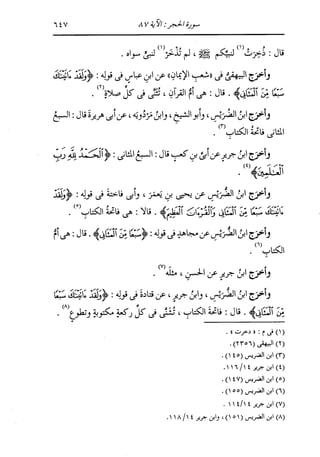 سورة الحجر : الآية ٨٧
٦٤٧
قال : ذُخِرَتْ(١) لنبيِّكم ﷺ ، لم تُذْخَرْ(١) لنبيٍّ سواه .
وأخرج البيهقىُّ فى « شعب الإيمانِ » عن ابنِ عباسٍ فى قولِه : ﴿ وَلَقَدْ ءَاتَيْنَٰكَ
سَبْعًا مِّنَ ٱلْمَثَانِى ﴾ . قال : هى أمُّ القرآنِ ، تُثَنَّى فى كلِّ صلاةٍ(٢) .
وأخرج ابنُ الضُّرَيسِ ، وأبو الشيخِ ، وابنُ مَرْدُويَه ، عن أبى هريرةَ قال : السبعُ
المثانى فاتحةُ الكتابِ(٣) .
وأخرج ابنُ جريرٍ عن أبىِّ بنِ كعبٍ قال : السبعُ المثانى : ﴿ ٱلْحَمْدُ لِلَّهِ رَبِّ
ٱلْعَٰلَمِينَ ﴾(٤) .
وأخرج ابنُ الضُّرَيسِ عن يحيى بنِ يَعمَرَ ، وأبى فاختةَ فى قولِه : ﴿ وَلَقَدْ
ءَاتَيْنَٰكَ سَبْعًا مِّنَ ٱلْمَثَانِى وَٱلْقُرْءَانَ ٱلْعَظِيمَ ﴾ . قالا : هى فاتحةُ الكتابِ(٥) .
وأخرج ابنُ الضُّرَيسِ عن مجاهدٍ فى قولِه : ﴿ سَبْعًا مِّنَ ٱلْمَثَانِى ﴾ . قال : هى أمُّ
الكتابِ(٦) .
وأخرج ابنُ جريرٍ عن الحسنِ ، مثلَه(٧) .
وأخرج ابنُ الضُّرَيسِ ، وابنُ جريرٍ ، عن قتادةَ فى قولِه : ﴿ وَلَقَدْ ءَاتَيْنَٰكَ سَبْعًا
مِّنَ ٱلْمَثَانِى ﴾ . قال : فاتحةُ الكتابِ ، تُثَنَّى فى كلِّ ركعةٍ مكتوبةٍ وتطوعٍ(٨) .
(١) فى م : « دخرت » .
(٢) البيهقى (٢٣٥٦) .
(٣) ابن الضريس (١٤٥) .
(٤) ابن جرير ١١٦/١٤ .
(٥) ابن الضريس (١٤٧) .
(٦) ابن الضريس (١٥٥) .
(٧) ابن جرير ١١٤/١٤ .
(٨) ابن الضريس (١٥٦) ، وابن جرير ١١٨/١٤ .